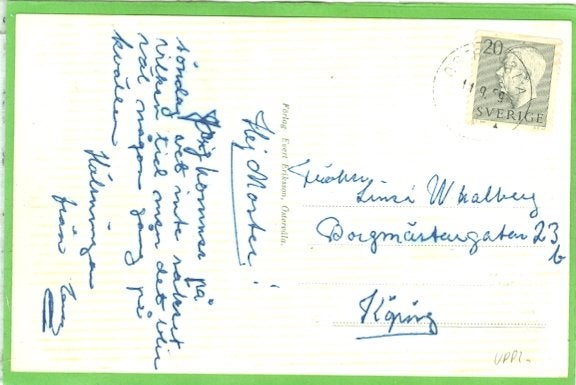 Hej Moster!
Jag kommer på
söndag det är inte säkert
vilken tid men det blir
väl någon gång på
kvällen
Hälsningar
från
Förlag Evert Eriksson, Östervåla.
20
SVERIGE
11.9.59
Linsi Whalberg
Borgmästergatan 23
b
Köping
UPPL-